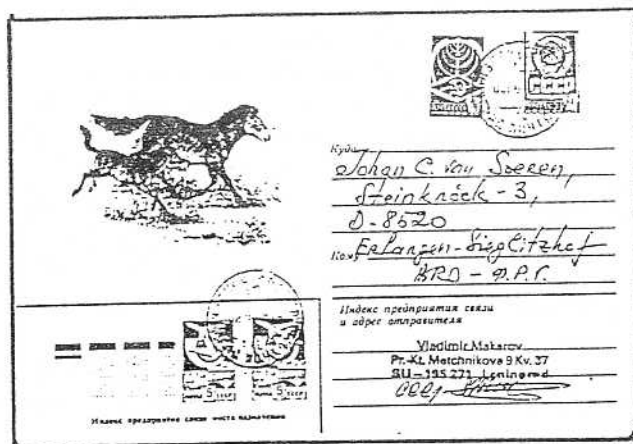 СССР
Куда
Johan C. van Soeren,
Steinknöck - 3,
D-8520
Кому
Erlangen-Sieglitzhof
BRD - Ф.Р.Г.
Индекс предприятия связи
и адрес отправителя
Vladimir Makarov
Pr.-Kt. Metchnikova 9 Kv. 37
SU-195 271 Leningrad
СССР
5
5
Индекс предприятия связи места назначения